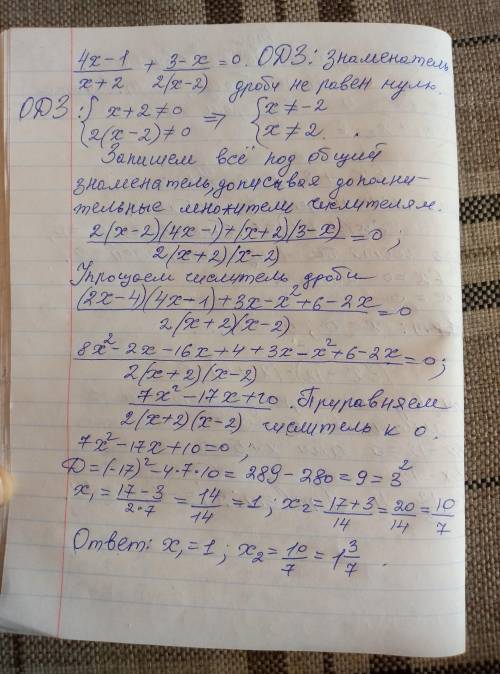 (4x-1)/(x+2) + (3-x)/(2(x-2)) = 0. ОДЗ: знаменатель
дроби не равен нулю.
ОДЗ: { x+2≠0 ⇒ { x≠-2
{ 2(x-2)≠0 { x≠2.
Запишем всё под общий
знаменатель, дописывая дополни-
тельные множители числителям.
(2(x-2)(4x-1)+(x+2)(3-x))/(2(x+2)(x-2)) = 0;
Упрощаем числитель дроби
((2x-4)(4x-1)+3x-x²+6-2x)/(2(x+2)(x-2)) = 0
(8x²-2x-16x+4+3x-x²+6-2x)/(2(x+2)(x-2)) = 0;
(7x²-17x+10)/(2(x+2)(x-2)). Приравняем
числитель к 0.
7x²-17x+10=0;
D=(-17)²-4·7·10=289-280=9=3²
x₁=(17-3)/(2·7)=14/14=1; x₂=(17+3)/14=20/14=10/7
Ответ: x₁=1; x₂=10/7=1 3/7.